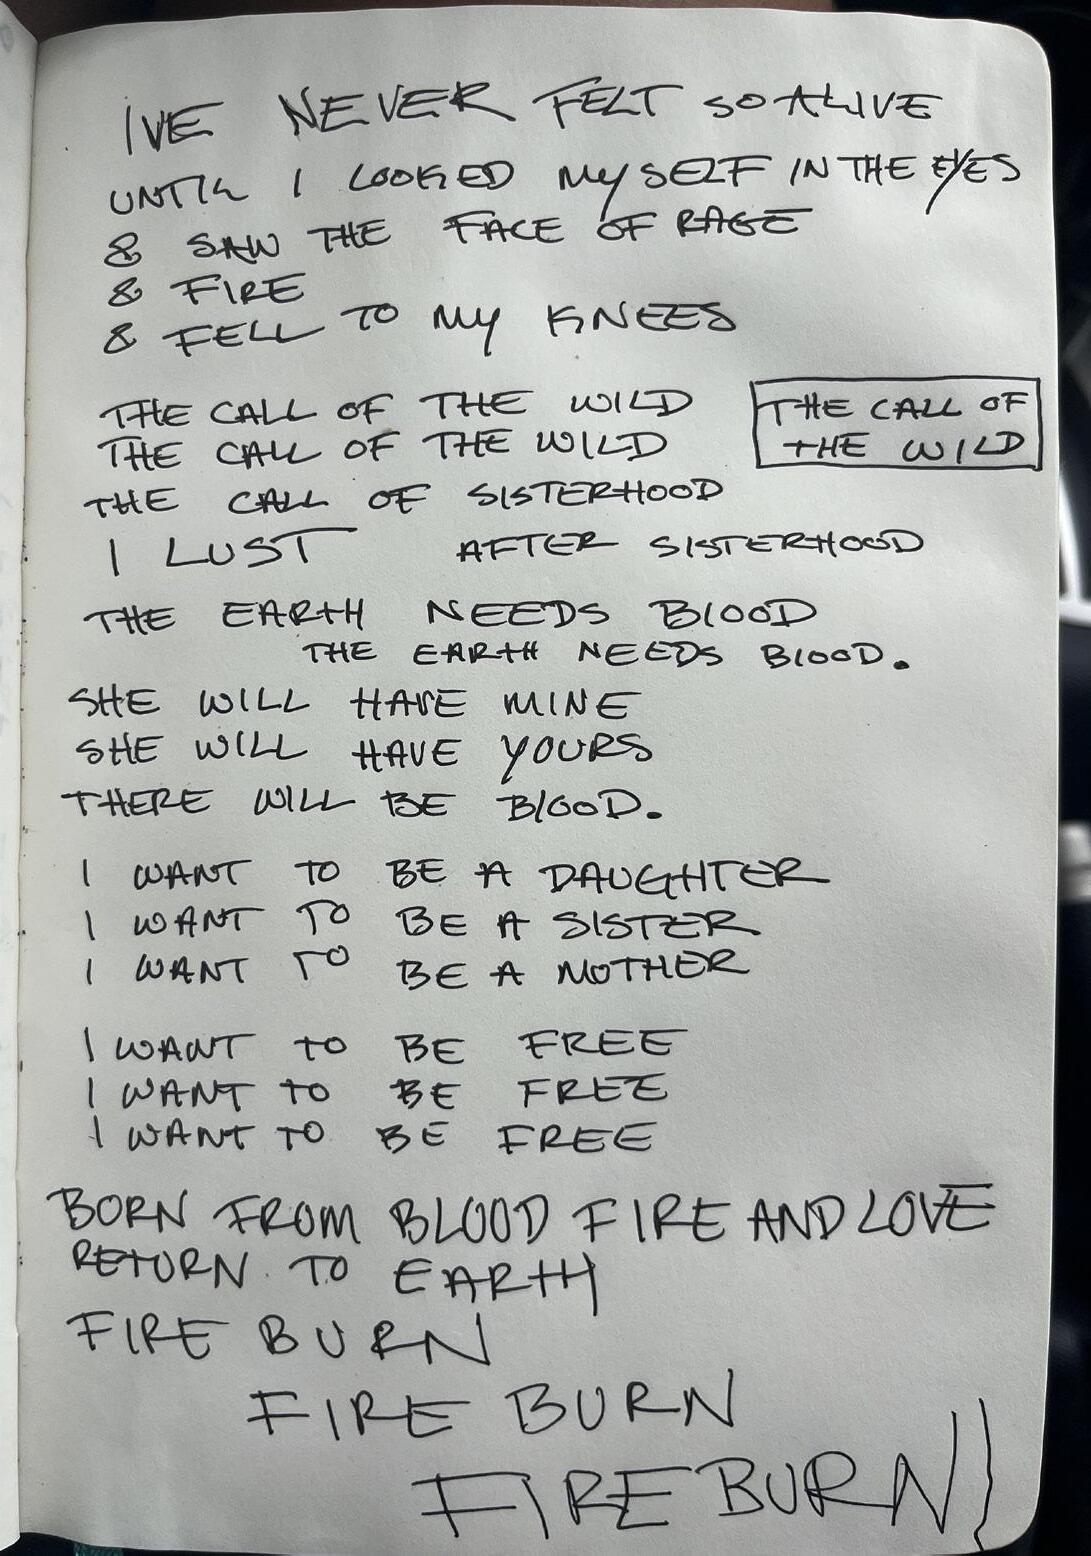 IVE NEVER FELT SO ALIVE
UNTIL I LOOKED MYSELF IN THE EYES
& SAW THE FACE OF RAGE
& FIRE
& FELL TO MY KNEES
THE CALL OF THE WILD
THE CALL OF THE WILD
THE CALL OF
THE WILD
THE CALL OF SISTERHOOD
I LUST AFTER SISTERHOOD
THE EARTH NEEDS BLOOD
THE EARTH NEEDS BLOOD.
SHE WILL HAVE MINE
SHE WILL HAVE YOURS
THERE WILL BE BLOOD.
I WANT TO BE A DAUGHTER
I WANT TO BE A SISTER
I WANT TO BE A MOTHER
I WANT TO BE FREE
I WANT TO BE FREE
I WANT TO BE FREE
BORN FROM BLOOD FIRE AND LOVE
RETURN TO EARTH
FIRE BURN
FIRE BURN
FIRE BURN